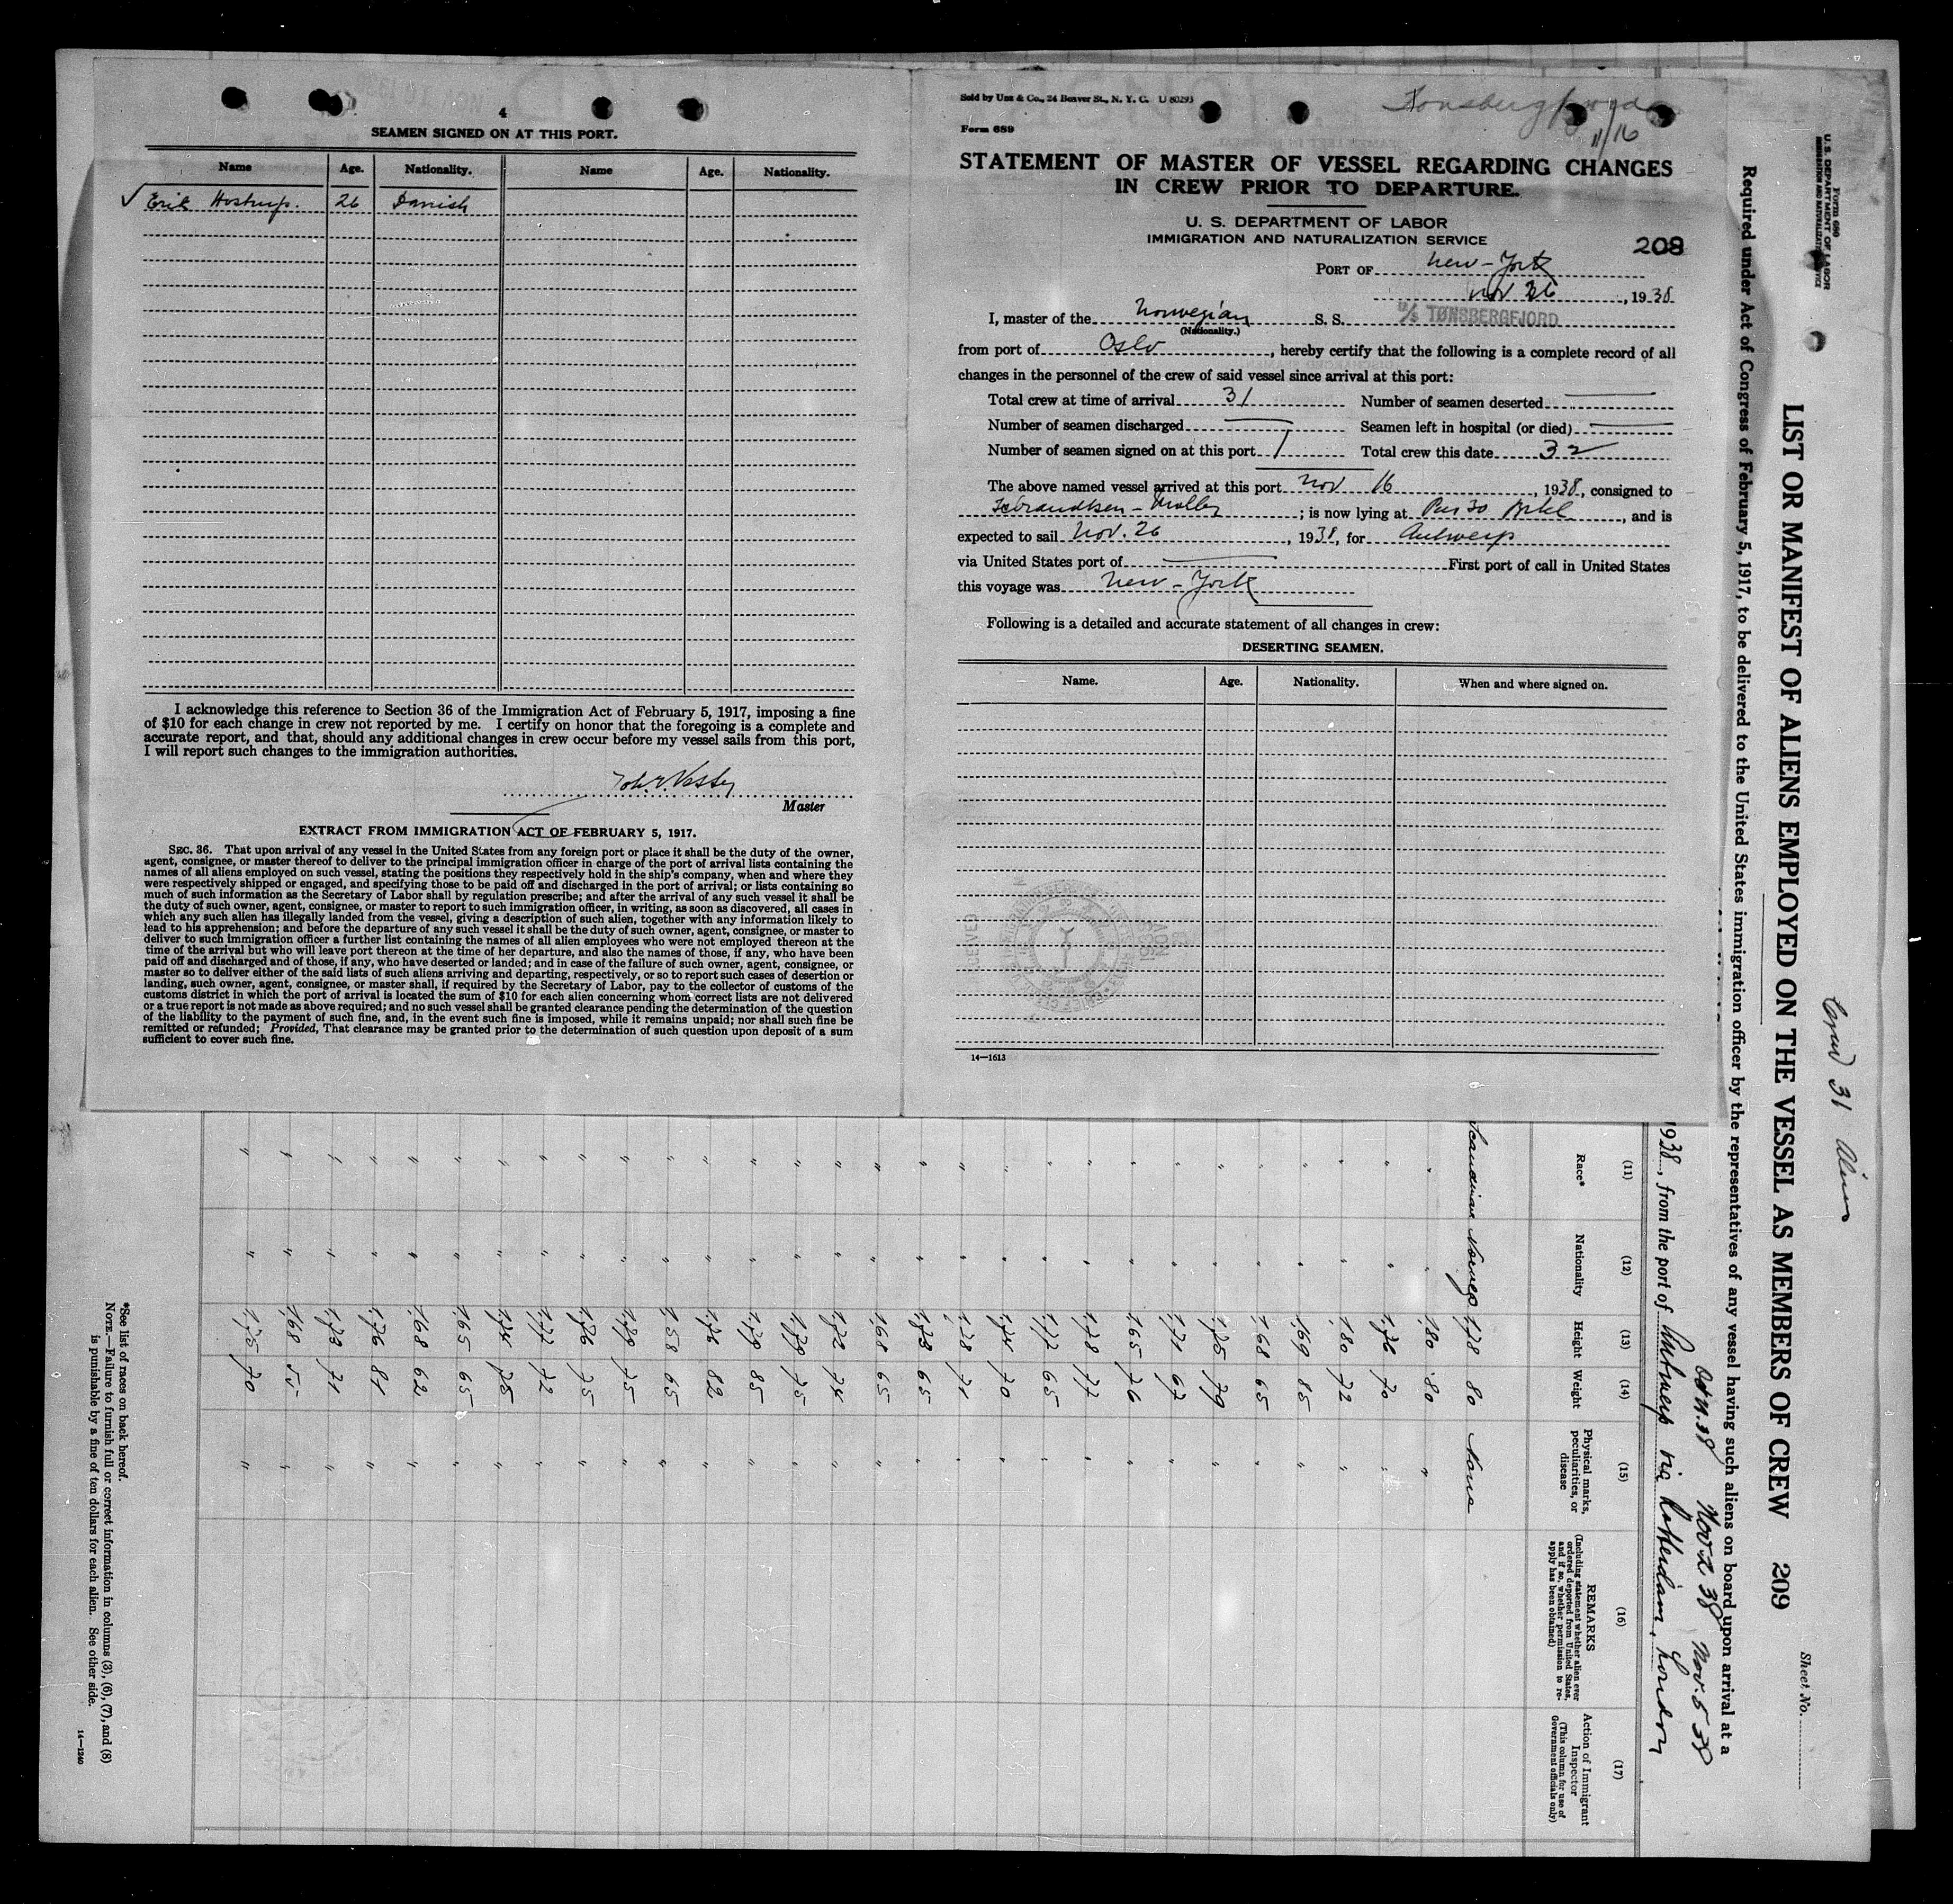 4
SEAMEN SIGNED ON AT THIS PORT.
Name Age. Nationality. Name Age. Nationality.
√ Erik Hostrup. 26 Danish
I acknowledge this reference to Section 36 of the Immigration Act of February 5, 1917, imposing a fine
of $10 for each change in crew not reported by me. I certify on honor that the foregoing is a complete and
accurate report, and that, should any additional changes in crew occur before my vessel sails from this port,
I will report such changes to the immigration authorities.
Master
EXTRACT FROM IMMIGRATION ACT OF FEBRUARY 5, 1917.
SEC. 36. That upon arrival of any vessel in the United States from any foreign port or place it shall be the duty of the owner,
agent, consignee, or master thereof to deliver to the principal immigration officer in charge of the port of arrival lists containing the
names of all aliens employed on such vessel, stating the positions they respectively hold in the ship's company, when and where they
were respectively shipped or engaged, and specifying those to be paid off and discharged in the port of arrival; or lists containing so
much of such information as the Secretary of Labor shall by regulation prescribe; and after the arrival of any such vessel it shall be
the duty of such owner, agent, consignee, or master to report to such immigration officer, in writing, as soon as discovered, all cases in
which any such alien has illegally landed from the vessel, giving a description of such alien, together with any information likely to
lead to his apprehension; and before the departure of any such vessel it shall be the duty of such owner, agent, consignee, or master to
deliver to such immigration officer a further list containing the names of all alien employees who were not employed thereon at the
time of the arrival but who will leave port thereon at the time of her departure, and also the names of those, if any, who have been
paid off and discharged and of those, if any, who have deserted or landed; and in case of the failure of such owner, agent, consignee, or
master so to deliver either of the said lists of such aliens arriving and departing, respectively, or so to report such cases of desertion or
landing, such owner, agent, consignee, or master shall, if required by the Secretary of Labor, pay to the collector of customs of the
customs district in which the port of arrival is located the sum of $10 for each alien concerning whom correct lists are not delivered
or a true report is not made as above required; and no such vessel shall be granted clearance pending the determination of the question
of the liability to the payment of such fine, and, in the event such fine is imposed, while it remains unpaid; nor shall such fine be
remitted or refunded; Provided, That clearance may be granted prior to the determination of such question upon deposit of a sum
sufficient to cover such fine.
Sold by Unz & Co., 24 Beaver St., N. Y. C. U 80293
Tonsbergfjord
11/16
Form 689
STATEMENT OF MASTER OF VESSEL REGARDING CHANGES
IN CREW PRIOR TO DEPARTURE.
U. S. DEPARTMENT OF LABOR
IMMIGRATION AND NATURALIZATION SERVICE
208
PORT OF New-York
Nov 26, 1938
I, master of the Norwegian S. S. M/S TØNSBERGFJORD
(Nationality.)
from port of Oslo, hereby certify that the following is a complete record of all
changes in the personnel of the crew of said vessel since arrival at this port:
Total crew at time of arrival 31 Number of seamen deserted
Number of seamen discharged Seamen left in hospital (or died)
Number of seamen signed on at this port 1 Total crew this date 32
The above named vessel arrived at this port Nov 16, 1938, consigned to
Isbrandtsen-Moller; is now lying at Pier 30 Bkl, and is
expected to sail Nov. 26, 1938, for Antwerp
via United States port of First port of call in United States
this voyage was New-York
Following is a detailed and accurate statement of all changes in crew:
DESERTING SEAMEN.
Name. Age. Nationality. When and where signed on.
14—1613
Form 680
U. S. DEPARTMENT OF LABOR
31 Aliens
LIST OR MANIFEST OF ALIENS EMPLOYED ON THE VESSEL AS MEMBERS OF CREW 209
Sheet No.
Required under Act of Congress of February 5, 1917, to be delivered to the United States immigration officer by the representatives of any vessel having such aliens on board upon arrival at a
Nov 2 38 Nov. 5 38
1938, from the port of Antwerp via Rotterdam, London
(11) (12) (13) (14) (15) (16) (17)
Race* Nationality Height Weight Physical marks, peculiarities, or disease REMARKS (Including statement whether alien ever ordered deported from United States, and if so, whether permission to re-apply has been obtained) Action of Immigrant Inspector (This column for use of Government officials only)
Scandinav Norweg. 1.78 80 None
" " 1.80 80 "
" " 1.76 70 "
" " 1.80 72 "
" " 1.69 85 "
" " 1.68 65 "
" " 1.75 79 "
" " 1.71 67 "
" " 1.65 76 "
" " 1.78 77 "
" " 1.72 65 "
" " 1.74 70 "
" " 1.78 71 "
" " 1.73 65 "
" " 1.68 65 "
" " 1.72 74 "
" " 1.79 75 "
" " 1.79 85 "
" " 1.76 82 "
" " 1.58 65 "
" " 1.79 75 "
" " 1.76 75 "
" " 1.77 72 "
" " 1.74 75 "
" " 1.65 65 "
" " 1.68 62 "
" " 1.76 81 "
" " 1.73 71 "
" " 1.68 55 "
" " 1.75 70 "
*See list of races on back hereof.
NOTE.—Failure to furnish full or correct information in columns (3), (6), (7), and (8)
is punishable by a fine of ten dollars for each alien. See other side.
14—1240